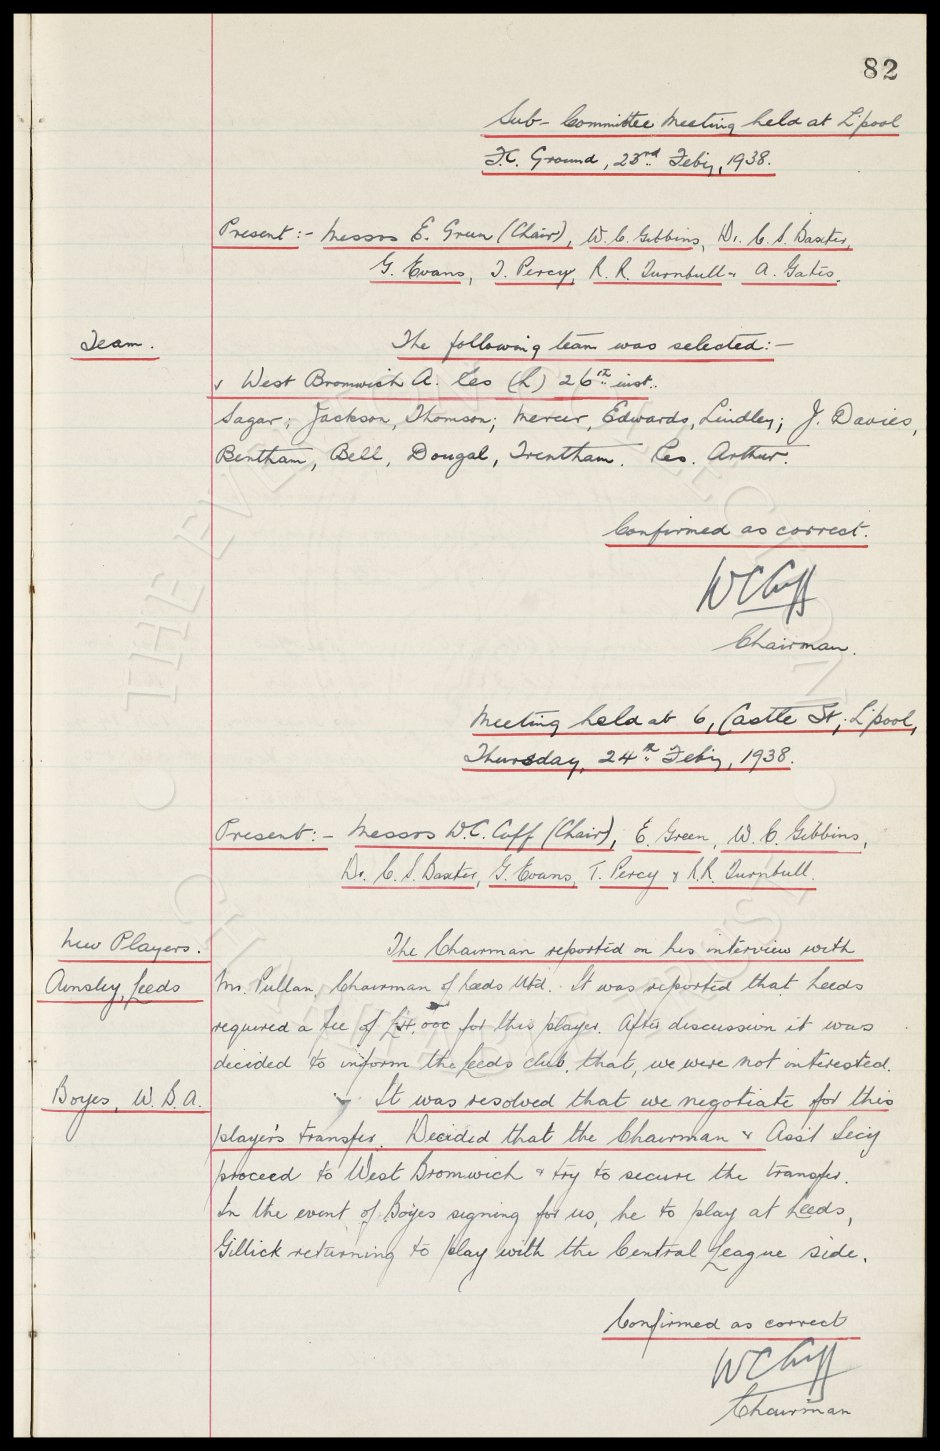 82
Sub-Committee Meeting held at L'pool
F.C. Ground, 23rd Feby, 1938.
Present:- Messrs E. Green (Chair), W. C. Gibbins, Dr. C. S. Baxter,
G. Evans, T. Percy, R. R. Turnbull & A. Gates.
Team.
The following team was selected:-
v West Bromwich A. Res (h) 26th inst.
Sagar; Jackson, Thomson; Mercer, Edwards, Lindley; J. Davies,
Bentham, Bell, Dougal, Trentham. Res. Arthur.
Confirmed as correct.
W C Cuff
Chairman.
Meeting held at 6, Castle St, L'pool,
Thursday, 24th Feby, 1938.
Present:- Messrs W.C. Cuff (Chair), E. Green, W. C. Gibbins,
Dr. C. S. Baxter, G. Evans, T. Percy & R.R. Turnbull.
New Players.
The Chairman reported on his interview with
Ainsley, Leeds
Mr. Pullan, Chairman of Leeds Utd. It was reported that Leeds
required a fee of £ ,000 for this player. After discussion it was
decided to inform the Leeds club, that, we were not interested.
Boyes, W. B. A.
It was resolved that we negotiate for this
player's transfer. Decided that the Chairman & Ass't Secy
proceed to West Bromwich & try to secure the transfer.
In the event of Boyes signing for us, he to play at Leeds,
Gillick returning to play with the Central League side.
Confirmed as correct
W C Cuff
Chairman
THE EVERTON COLLECTION